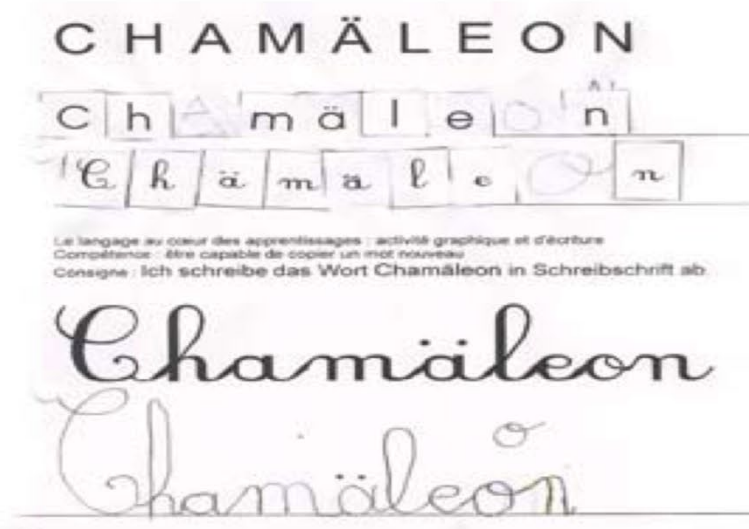 CHAMÄLEON
Chamäleon
Chämäleon
Le langage au cœur des apprentissages : activité graphique et d'écriture
Compétence : être capable de copier un mot nouveau
Consigne : Ich schreibe das Wort Chamäleon in Schreibschrift ab
Chamäleon
Chamäleon